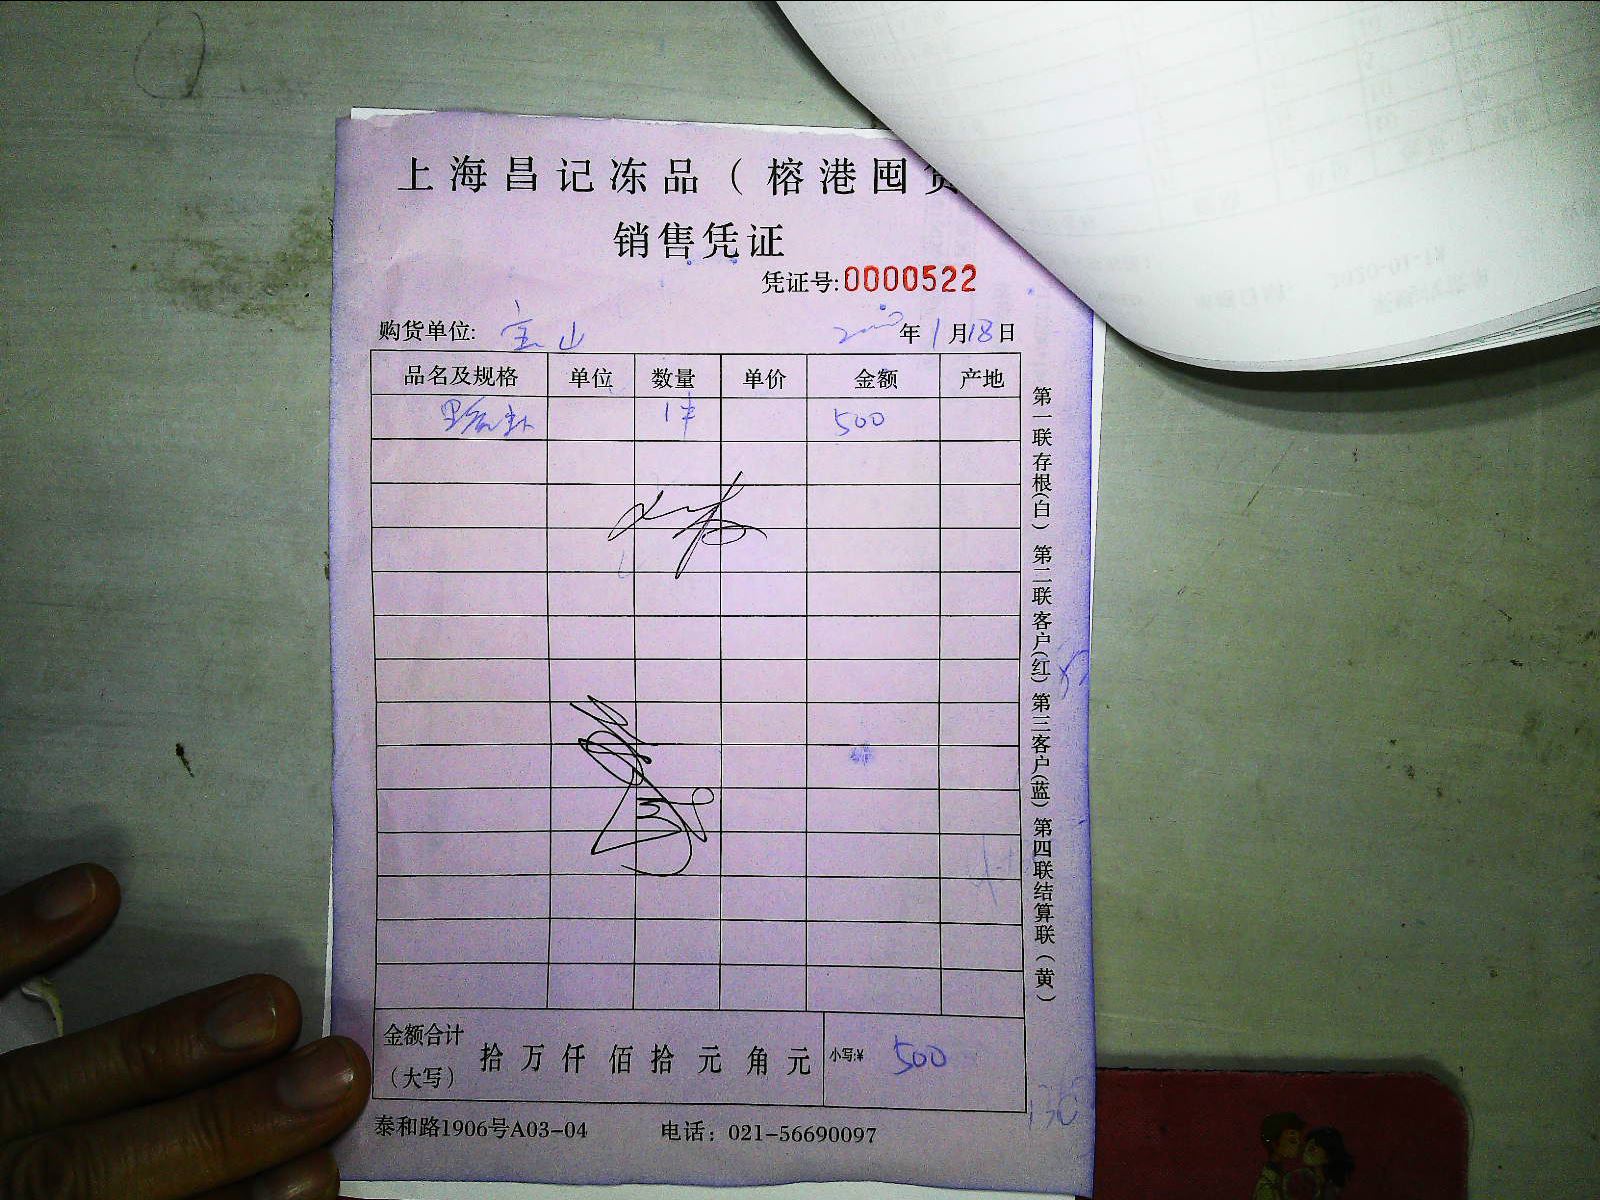 上海昌记冻品（榕港囤货
销售凭证
凭证号:0000522
购货单位: 宝山 年1月18日
品名及规格 单位 数量 单价 金额 产地
1件 500
金额合计（大写） 拾万仟佰拾元角元 小写:¥ 500
泰和路1906号A03-04 电话：021-56690097
第一联存根(白) 第二联客户(红) 第三客户(蓝) 第四联结算联(黄)